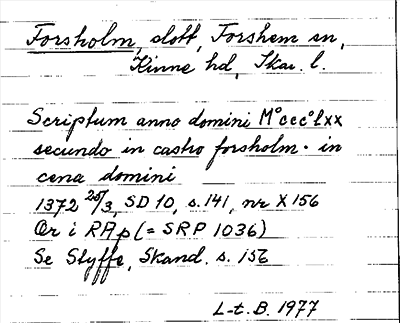 Forsholm, slott, Forshem sn,
Kinne hd, Skar. l.
Scriptum anno domini M°ccc°lxx
secundo in castro forsholm. in
cena domini
1372 25/3, SD 10, s. 141, nr X 156
Or i RAp (= SRP 1036)
Se Styffe, Skand. s. 156
L-t. B. 1977